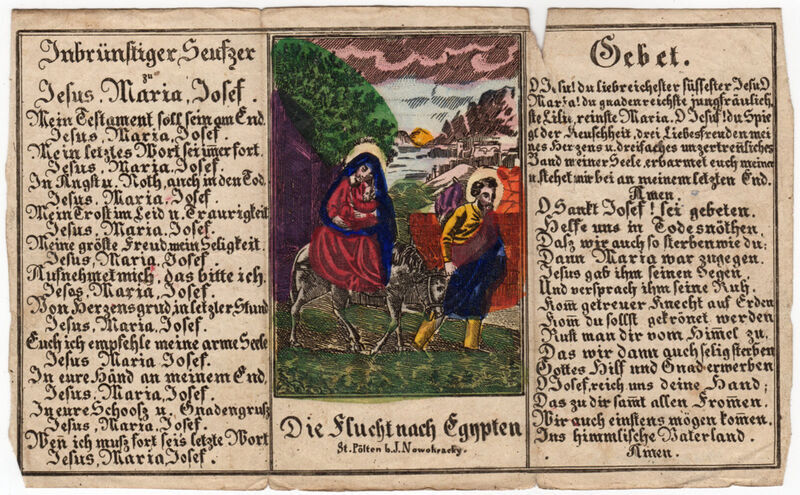 Inbrünstiger Seufzer
zu
Jesus, Maria, Josef.
Mein Testament soll sein am End.
Jesus, Maria, Josef.
Mein letztes Wort sei imer fort
Jesus, Maria, Josef.
In Angst u. Noth, auch in den Tod.
Jesus, Maria, Josef.
Mein Trost im Leid u. Traurigkeit
Jesus, Maria, Josef.
Meine gröste Freud, mein Seligkeit.
Jesus, Maria, Josef.
Aufnehmet mich, das bitte ich.
Jesus, Maria, Josef.
Von Herzensgrud, in letzler Stund
Jesus, Maria, Josef.
Euch ich empfehle meine arme Seele
Jesus Maria Josef.
In eure Hand an meinem End,
Jesus, Maria, Josef.
In eure Schooß u. Gnadengruß
Jesus, Maria, Josef.
Wen ich muß fort seis letzte Wort
Jesus, Maria, Josef.
Die Flucht nach Egypten
St. Pölten b. J. Nowohracky.
Gebet.
O Jesu! du liebreichester süssester Jesu, O
Maria! du gnadenreichste jungfräulich,
ste Lilie, reinste Maria. O Josef! du Spie
gel der Keuschheit, drei Liebesfreuden mei
nes Herzens u. dreifaches unzertrenliches
Band meiner Seele, erbarmet euch meiner
u stehet mir bei an meinem letzten End.
Amen.
O Sankt Josef! sei gebeten.
Helfe uns in Todesnöthen,
Dasz wir auch so sterben wie du;
Dann Maria war zugegen.
Jesus gab ihm seinen Segen,
Und versprach ihm seine Ruh.
Kom̄ getreuer Knecht auf Erden
Kom̄ du sollst gekrönet werden
Ruft man dir vom Him̄el zu,
Das wir dann auch selig sterben
Gottes Hilf und Gnad erwerben
O Josef, reich uns deine Hand;
Das zu dir sam̄t allen From̄en.
Wir auch einstens mögen kom̄en.
Ins himmlische Vaterland.
Amen.